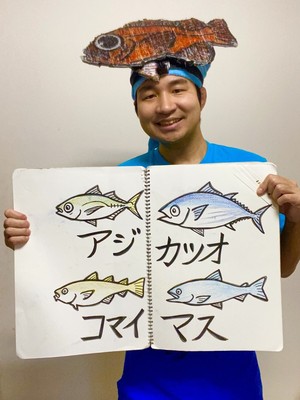 アジ カツオ
コマイ マス